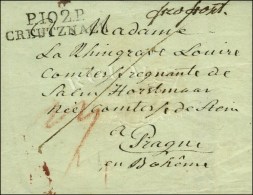 P.102.P.
CREUTZNACH
franco
Madame
La Rhingrave Louise
Comtesse regnante de
Salm Horstmaar
née Comtesse de
a Prague
en Bohême